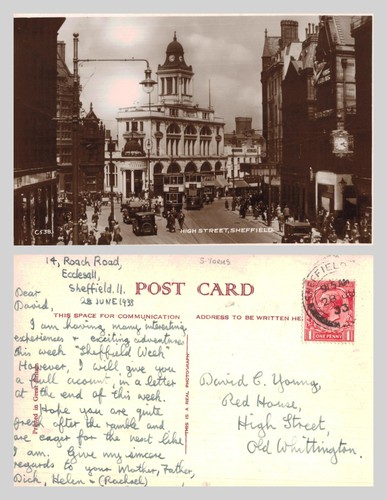 C536
HIGH STREET, SHEFFIELD
S-YORKS
14, Roach Road,
Ecclesall,
Sheffield. 11.
28 JUNE 1933
POST CARD
THIS SPACE FOR COMMUNICATION
ADDRESS TO BE WRITTEN HE
Dear
David,
I am having many interesting
experiences & exciting adventures
this week "Sheffield Week"
However, I will give you
a full acount, in a letter
at the end of this week.
Hope you are quite
fresh after the ramble and
are eager for the next like
I am. Give my sincere
regards to your Mother, Father,
Dick, Helen & (Rachael)
Printed in Great
THIS IS A REAL PHOTOGRAPH
SHEFFIELD
33
POSTAGE
ONE PENNY
David C. Young,
Red House,
High Street,
Old Whittington.